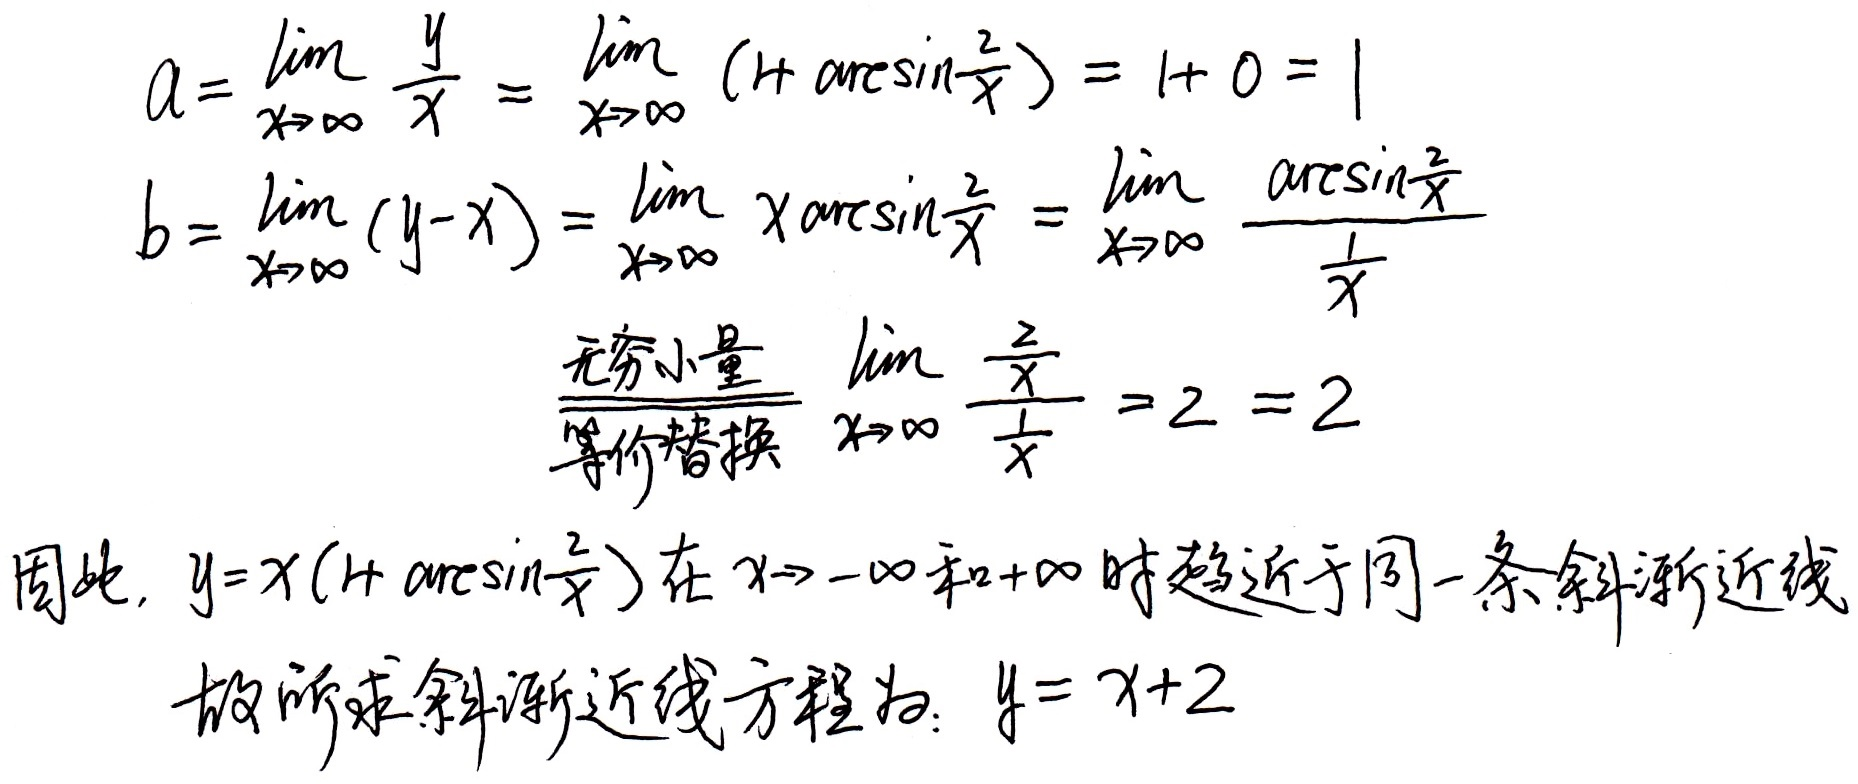 a = lim_{x→∞} y/x = lim_{x→∞} (1+ arcsin 2/x) = 1+ 0 = 1
b = lim_{x→∞} (y-x) = lim_{x→∞} x arcsin 2/x = lim_{x→∞} (arcsin 2/x)/(1/x)
无穷小量 等价替换 lim_{x→∞} (2/x)/(1/x) = 2 = 2
因此, y=x(1+ arcsin 2/x) 在 x→ -∞ 和+∞ 时趋近于同一条斜渐近线
故所求斜渐近线方程为: y= x+2